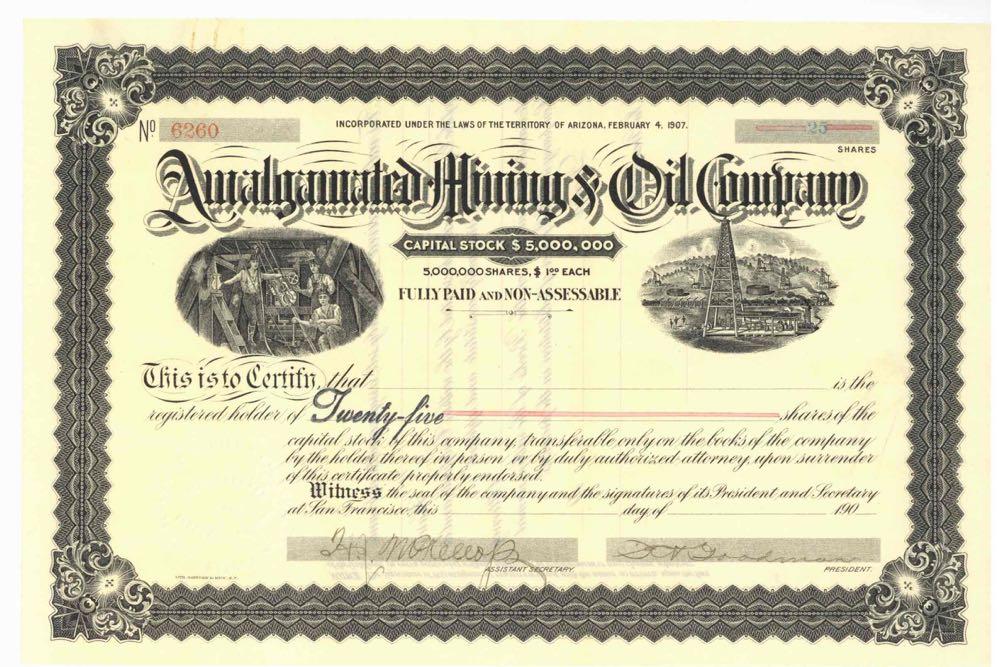 No 6260
INCORPORATED UNDER THE LAWS OF THE TERRITORY OF ARIZONA, FEBRUARY 4, 1907.
25
SHARES
Amalgamated Mining & Oil Company
CAPITAL STOCK $5,000,000
5,000,000 SHARES, $1.00 EACH
FULLY PAID AND NON-ASSESSABLE
This is to Certify, that is the
registered holder of Twenty-five shares of the
capital stock of this company, transferable only on the books of the company
by the holder thereof in person or by duly authorized attorney, upon surrender
of this certificate properly endorsed.
Witness the seal of the company and the signatures of its President and Secretary
at San Francisco, this day of 190
Goodman
ASSISTANT SECRETARY.
PRESIDENT.